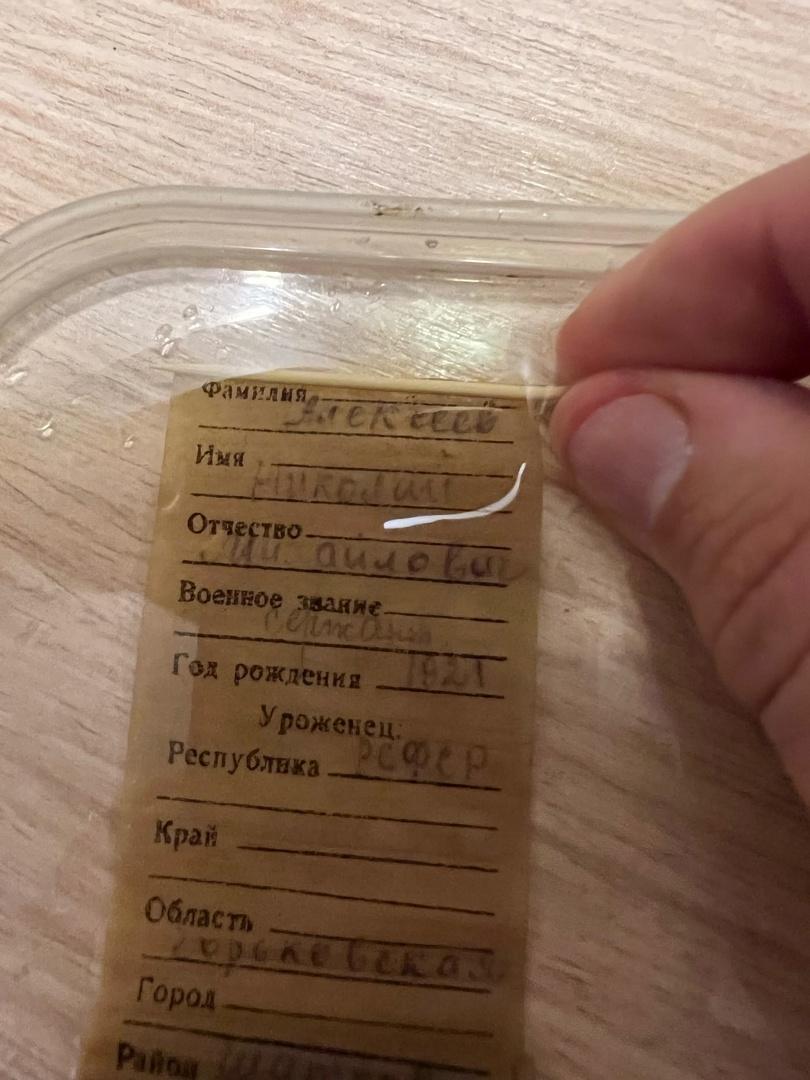 Фамилия
Алексеев
Имя
Николай
Отчество
Михайлович
Военное звание
сержант
Год рождения 1921
Уроженец:
Республика РСФСР
Край
Область
Горьковская
Город
Район